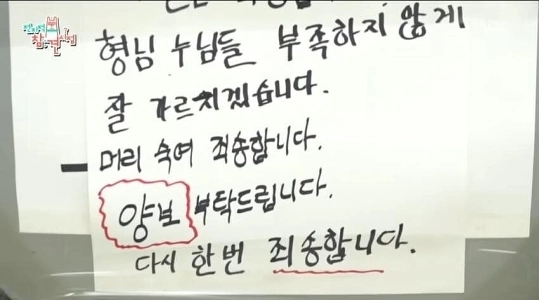 전지적 참견 시점
형님 누님들 부족하지 않게
잘 가르치겠습니다.
머리 숙여 죄송합니다.
양보 부탁드립니다.
다시 한번 죄송합니다.